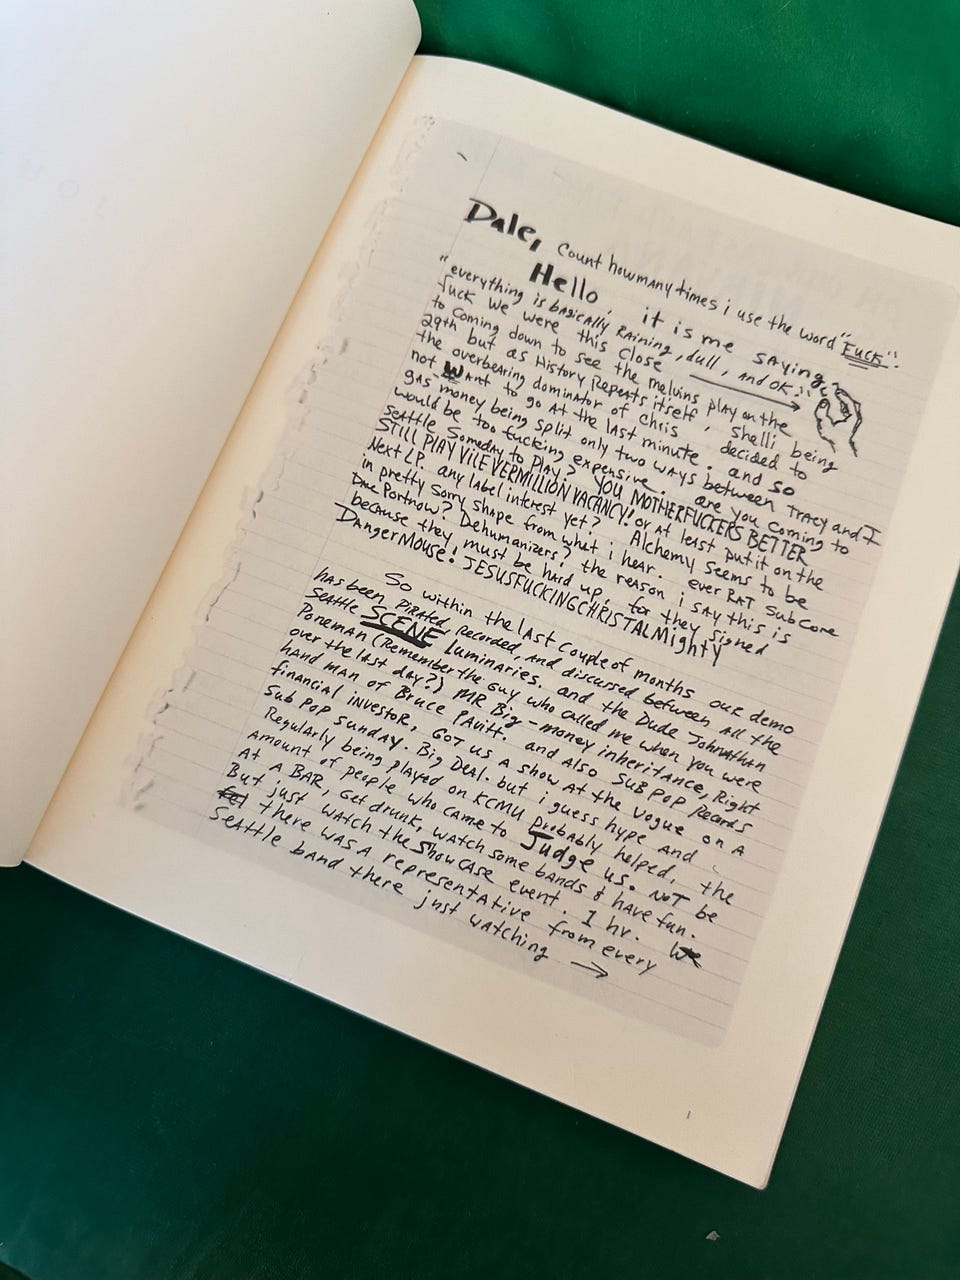 Dale, Count how many times i use the word "FUCK".
Hello, it is me saying
"everything is basically Raining, dull, and OK."
fuck We were this close
to coming down to see the melvins play on the
29th but as History Repeats itself, shelli being
the overbearing dominator of Chris, decided to
not Want to go At the last minute. and so
gas-money being split only two ways between TRACY and I
would be too fucking expensive. are you coming to
Seattle Someday to Play? YOU MOTHERFUCKERS BETTER
STILL PLAY VILE VERMILLION VACANCY! or at least put it on the
Next LP. any label interest yet? Alchemy seems to be
in pretty sorry shape from what i hear. ever RAT SubCore
Portnow? Dehumanizers? the reason i say this is
because they must be hard up, for they signed
DangerMouse! JESUSFUCKINGCHRISTALMighty
So within the last couple of months our demo
has been PIRATED, Recorded, and discussed between all the
Seattle SCENE Luminaries. and the Dude Johnathan
Poneman (Remember the Guy who called me when you were
over the last day?) MR Big-money inheritance, Right
hand man of Bruce PAvitt. and Also SUB POP Records
financial investor, Got us a show At the Vogue on a
Sub Pop Sunday. Big DeAl. but i guess hype and
Regularly being played on KCMU Probably helped, the
Amount of people who came to Judge us. NOT be
At a BAR, Get drunk, watch some bands & have fun.
But just watch the Showcase event. 1 hr. We
there was a representative from every
Seattle band there just watching →
1